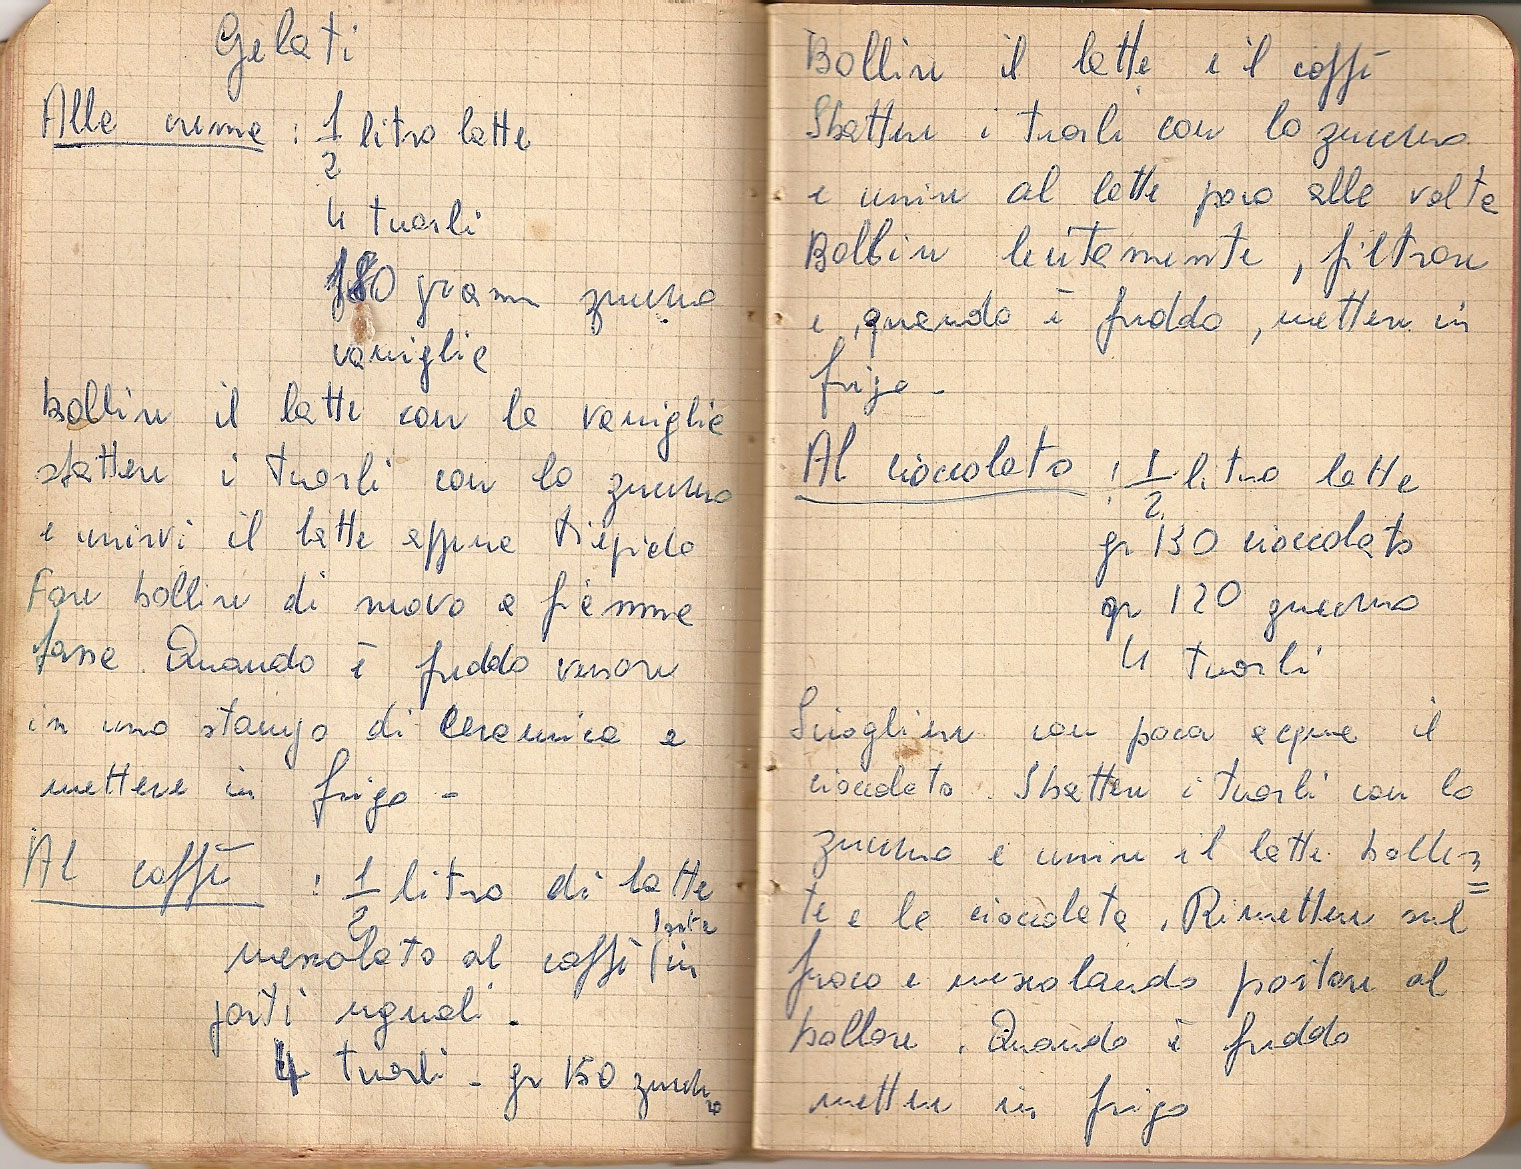 Gelati
Alla crema : 1/2 litro latte
4 tuorli
180 grammi zucchero
vaniglia
bollire il latte con la vaniglia
sbattere i tuorli con lo zucchero
e unirvi il latte appena tiepido
Fare bollire di nuovo a fiamma
bassa. Quando è freddo versare
in uno stampo di ceramica e
mettere in frigo -
Al caffè : 1/2 litro di latte
mescolato al caffè forte in
parti uguali.
4 tuorli - gr 150 zucchero
Bollire il latte e il caffè
Sbattere i tuorli con lo zucchero
e unire al latte poco alla volta
Bollire lentamente, filtrare
e, quando è freddo, mettere in
frigo -
Al cioccolato : 1/2 litro latte
gr 130 cioccolato
gr 120 zucchero
4 tuorli
Sciogliere con poca acqua il
cioccolato. Sbattere i tuorli con lo
zucchero e unire il latte bollen=
te e la cioccolata. Rimettere sul
fuoco e mescolando portare al
bollore. Quando è freddo
mettere in frigo